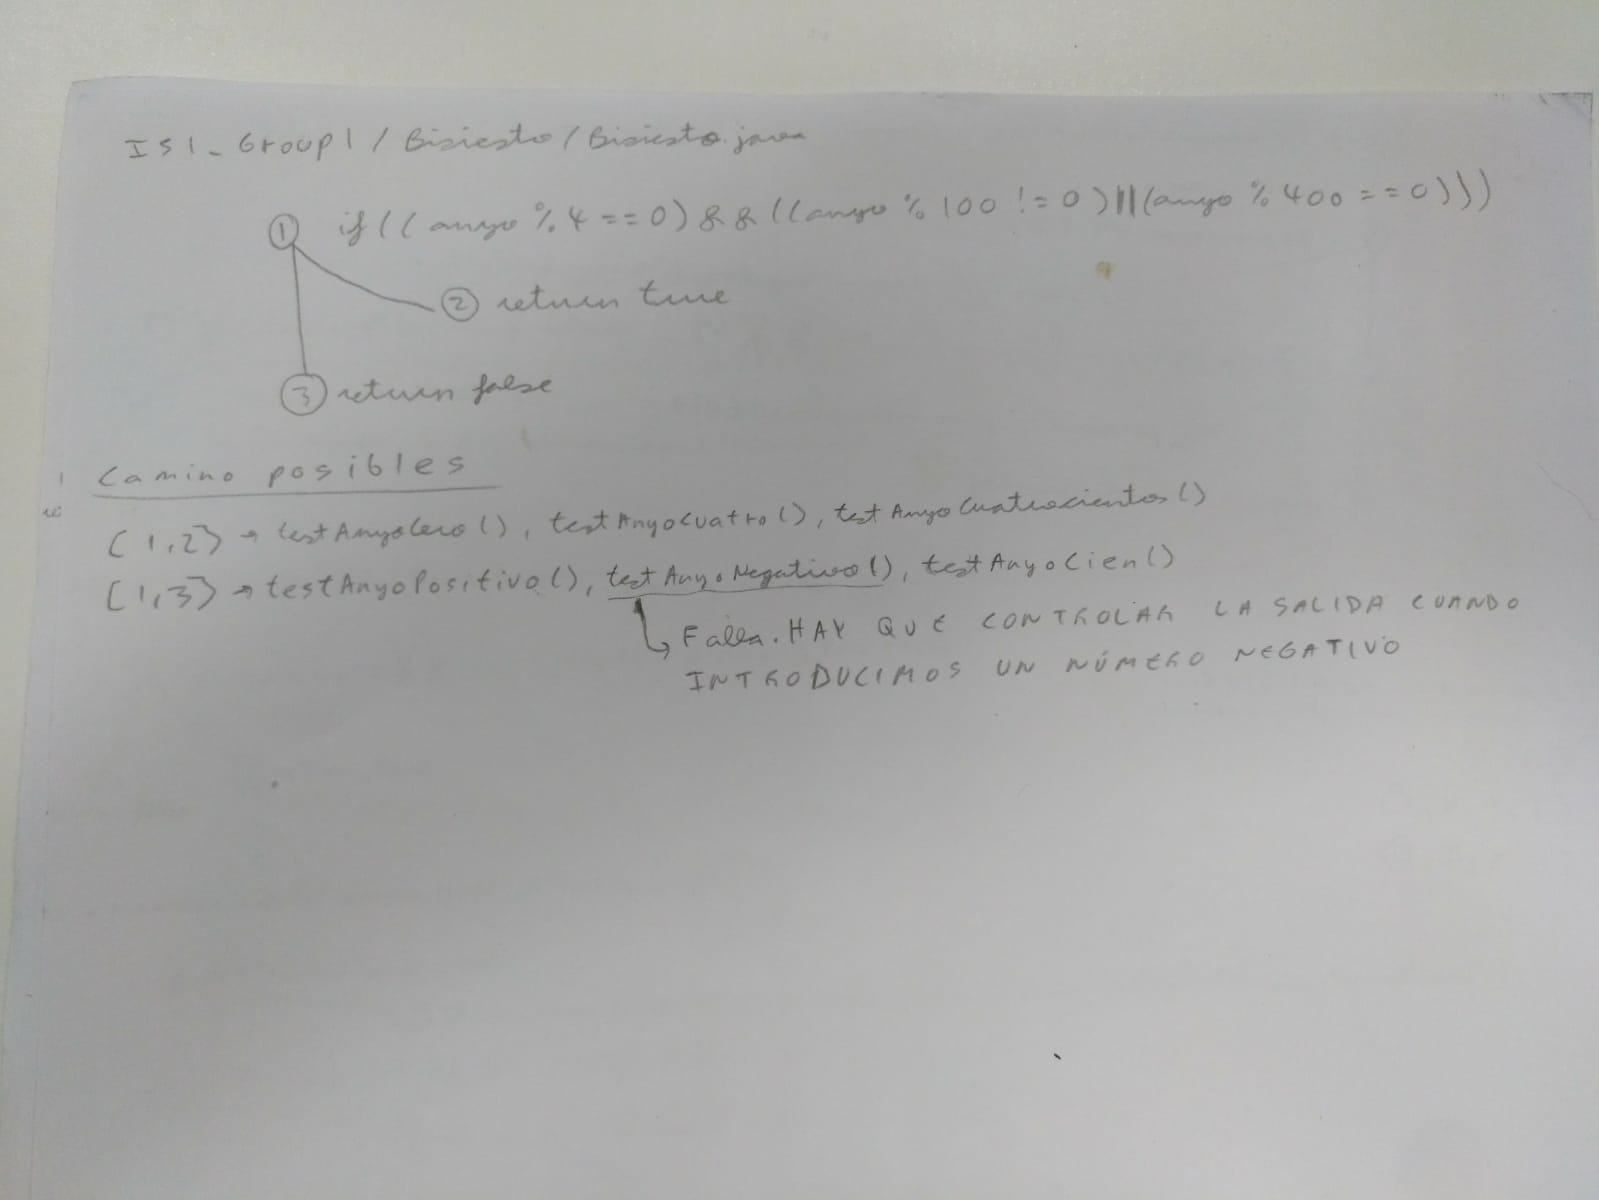 IS1_Group1/Bisiesto/Bisiesto.java
① if((anyo%4==0)&&((anyo%100!=0)||(anyo%400==0)))
② return true
③ return false
Camino posibles
[1,2] → testAnyoCero(), testAnyoCuatro(), testAnyoCuatrocientos()
[1,3] → testAnyoPositivo(), testAnyoNegativo(), testAnyoCien()
↳ Falla. HAY QUE CONTROLAR LA SALIDA CUANDO
INTRODUCIMOS UN NÚMERO NEGATIVO